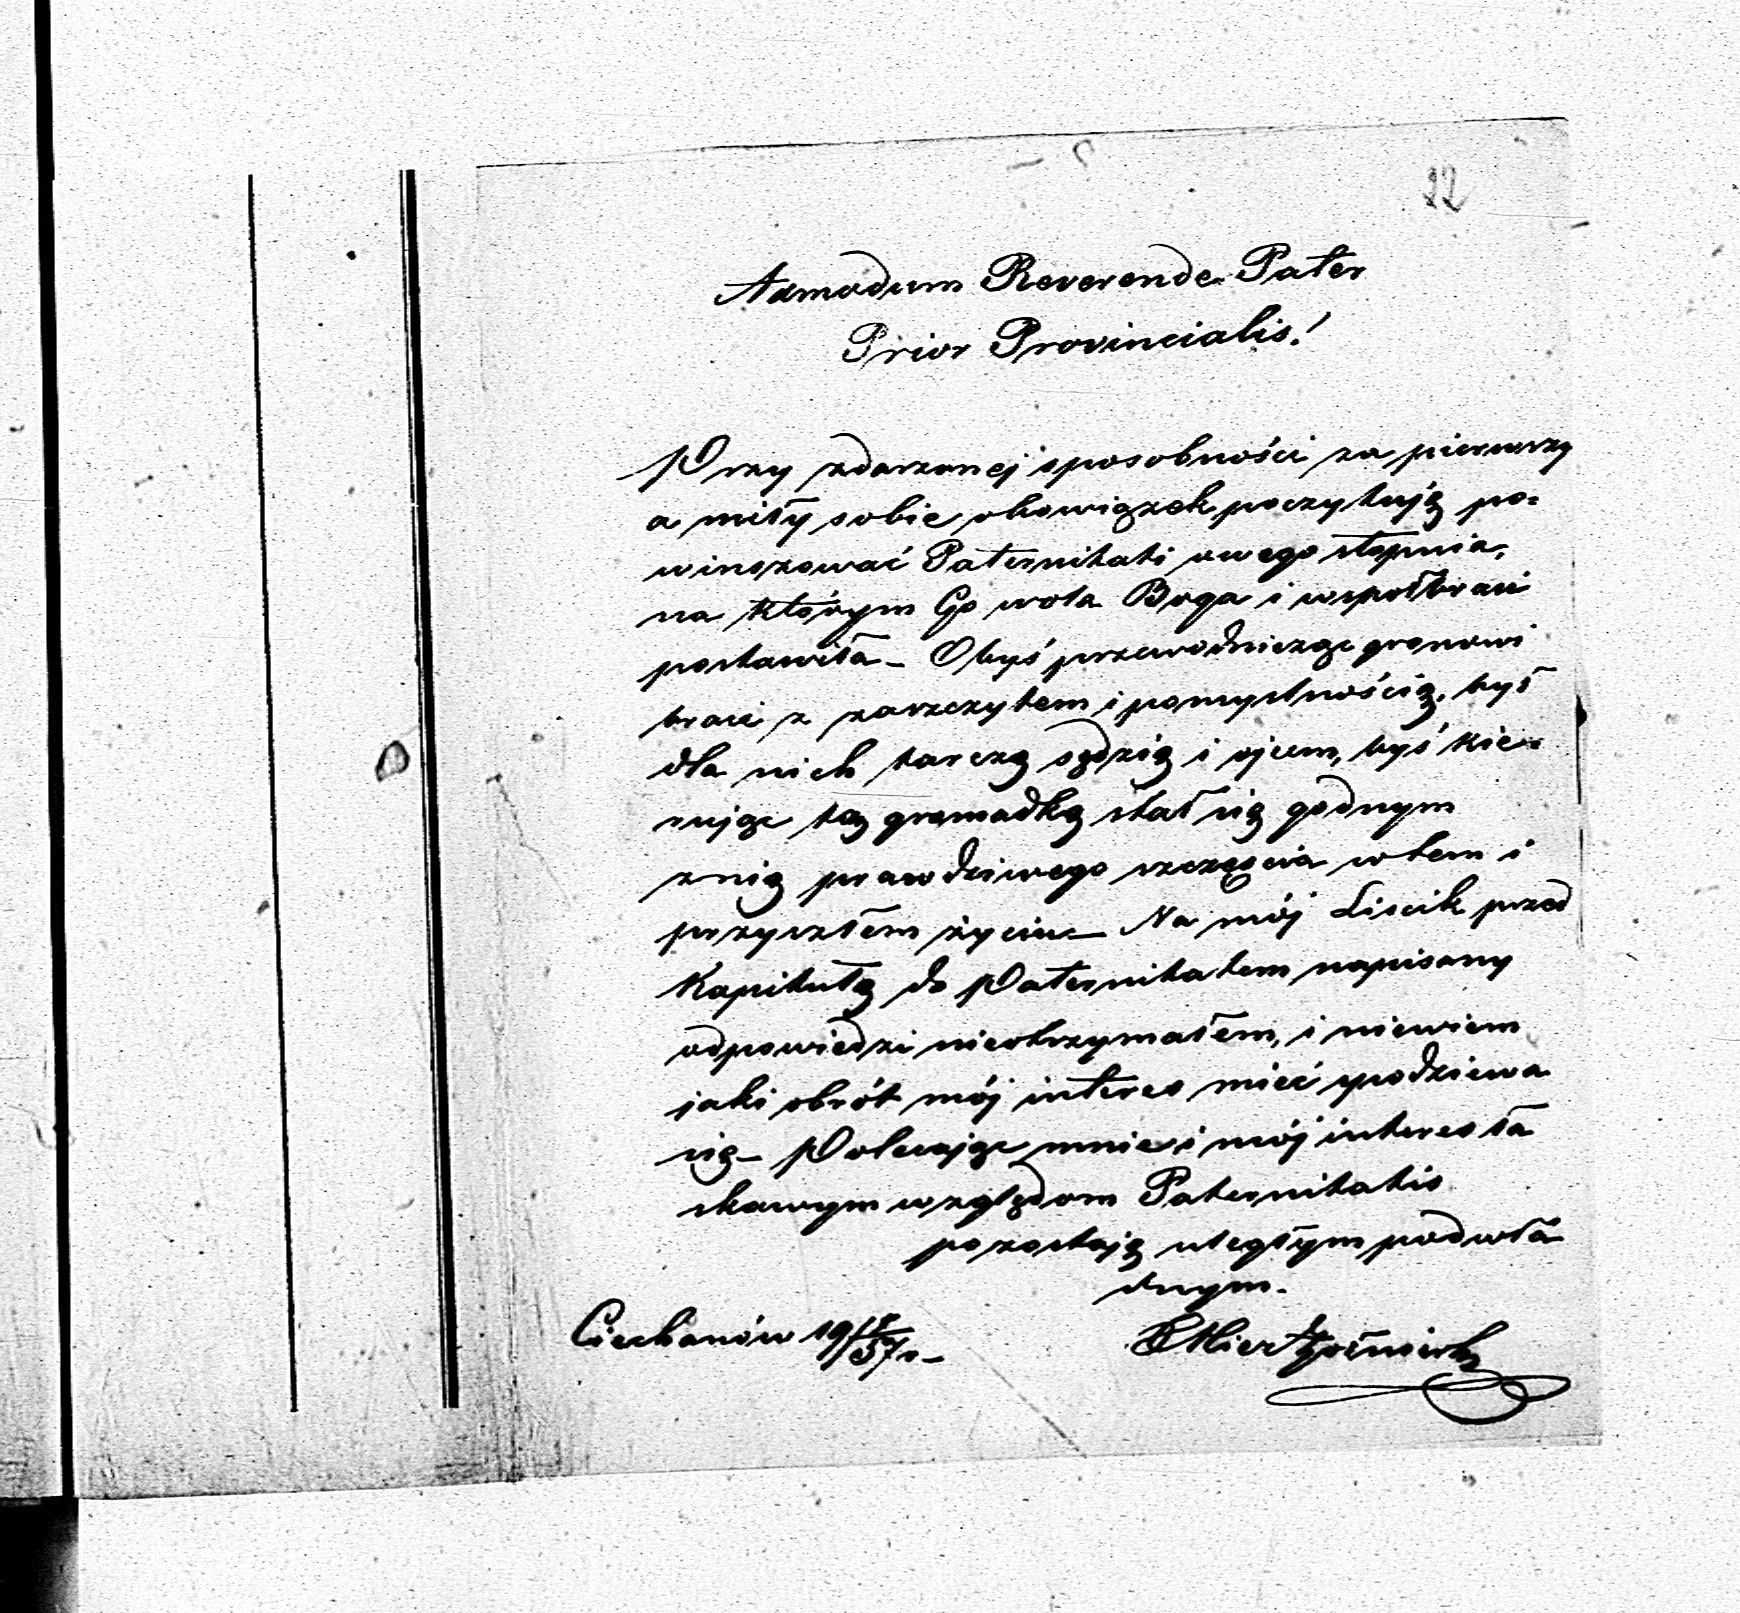 22
Admodum Reverende Pater
Prior Provincialis!
Przy zdarzonej sposobności za pierwszy
a miły sobie obowiązek poczytuję po=
winszować Paternitati owego stopnia,
na którym Go wola Boga i współbraci
postawiła – Obyś przewodnicząc gronowi
braci z zaszczytem i pomyślnością, był
dla nich tarczą sędzią i ojcem, byś kie=
rując tą gromadką stał się godnym
z nią prawdziwego szczęścia w tem i
przyszłem życiu – Na mój Liścik przed
Kapitułą do Paternitatem napisany
odpowiedzi nieotrzymałem, i niewiem
jaki obrót mój interes mieć spodziewa
się – Polecając mnie i mój interes ła
skawym względom Paternitatis
pozostaję uległym podwła
dnym.
Ciechanów